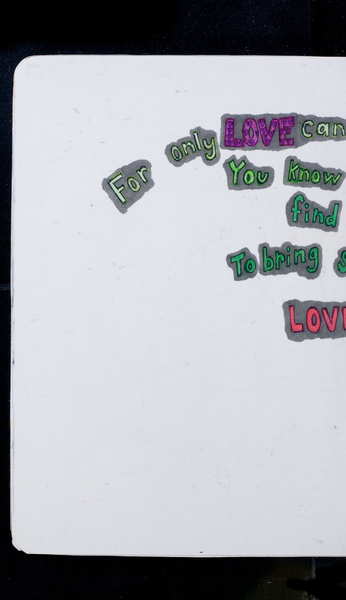 For only LOVE can
You know
find
To bring